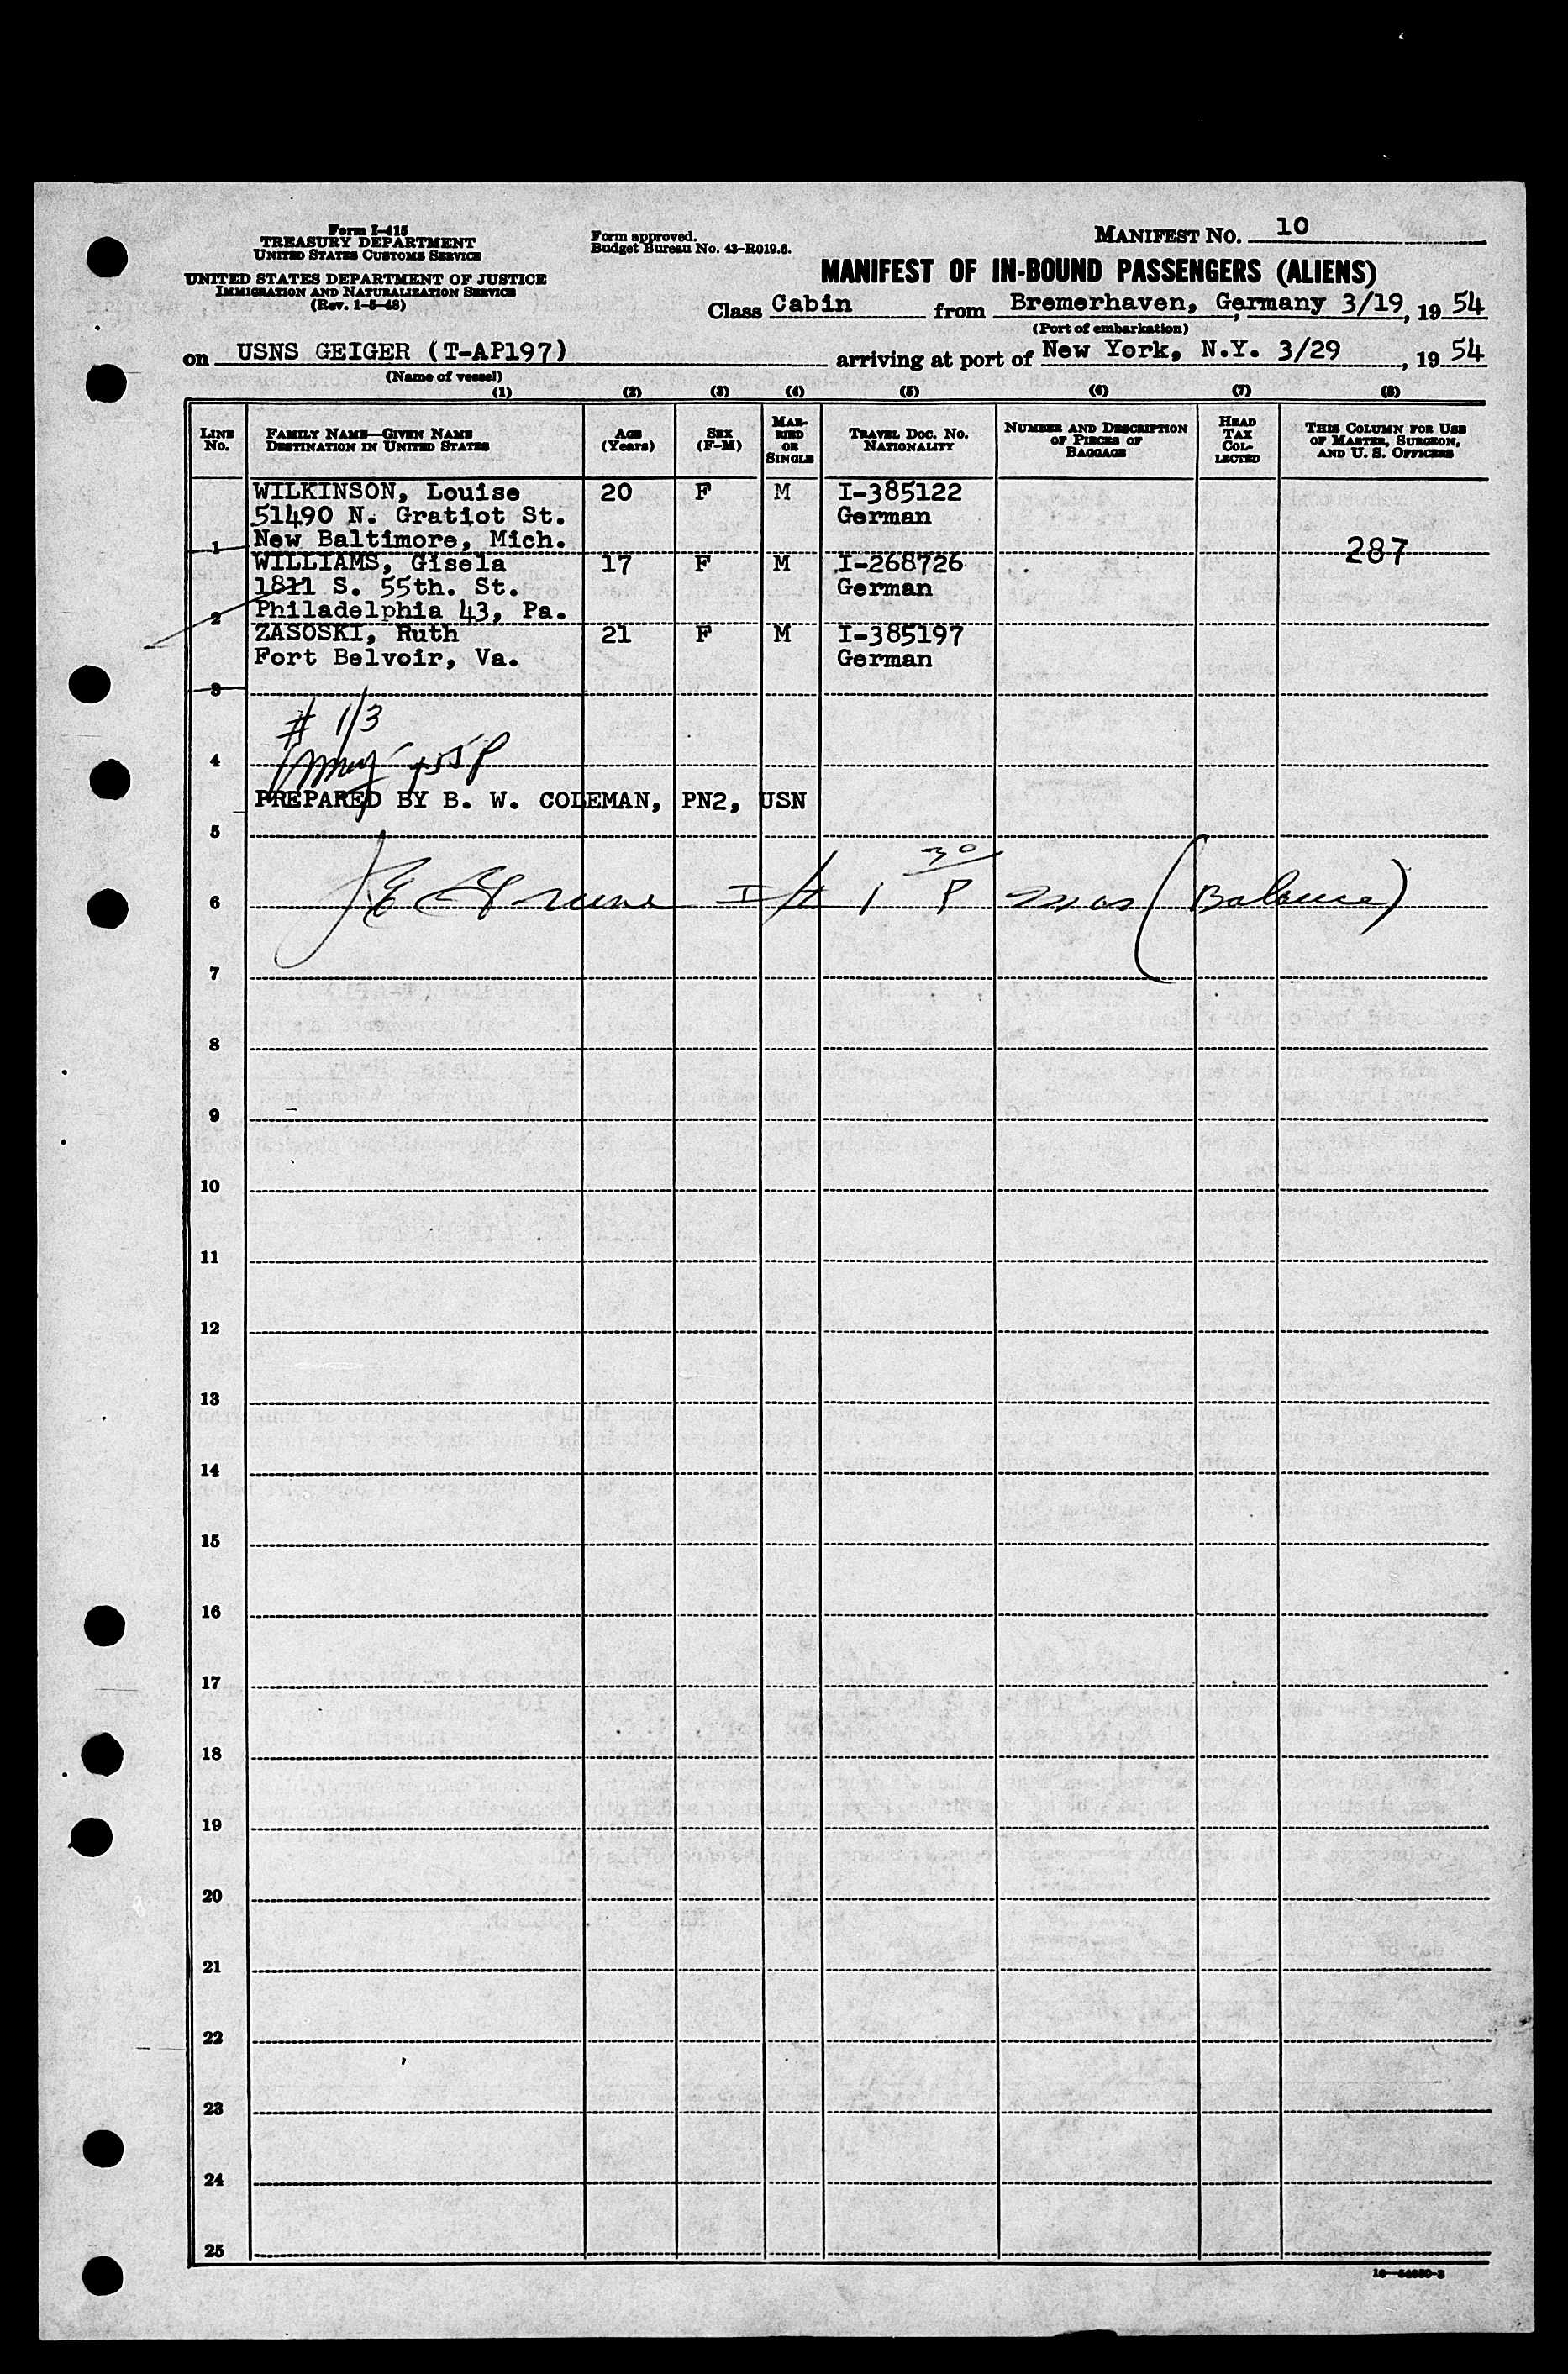 Form I-415
TREASURY DEPARTMENT
UNITED STATES CUSTOMS SERVICE
UNITED STATES DEPARTMENT OF JUSTICE
IMMIGRATION AND NATURALIZATION SERVICE
(Rev. 1-5-48)
Form approved.
Budget Bureau No. 43-R019.6.
MANIFEST NO. 10
MANIFEST OF IN-BOUND PASSENGERS (ALIENS)
Class Cabin from Bremerhaven, Germany 3/19, 1954
(Port of embarkation)
on USNS GEIGER (T-AP197) arriving at port of New York, N.Y. 3/29, 1954
(Name of vessel)
(1) (2) (3) (4) (5) (6) (7) (8)
LINE NO. FAMILY NAME—GIVEN NAME DESTINATION IN UNITED STATES AGE (Years) SEX (F-M) MARRIED OR SINGLE TRAVEL DOC. NO. NATIONALITY NUMBER AND DESCRIPTION OF PIECES OF BAGGAGE HEAD TAX COLLECTED THIS COLUMN FOR USE OF MASTER, SURGEON, AND U. S. OFFICERS
WILKINSON, Louise 20 F M I-385122
51490 N. Gratiot St. German
1 New Baltimore, Mich. 287
WILLIAMS, Gisela 17 F M I-268726
1811 S. 55th. St. German
2 Philadelphia 43, Pa.
ZASOSKI, Ruth 21 F M I-385197
Fort Belvoir, Va. German
3
# 1/3
4
PREPARED BY B. W. COLEMAN, PN2, USN
5
6 (Balance)
7
8
9
10
11
12
13
14
15
16
17
18
19
20
21
22
23
24
25